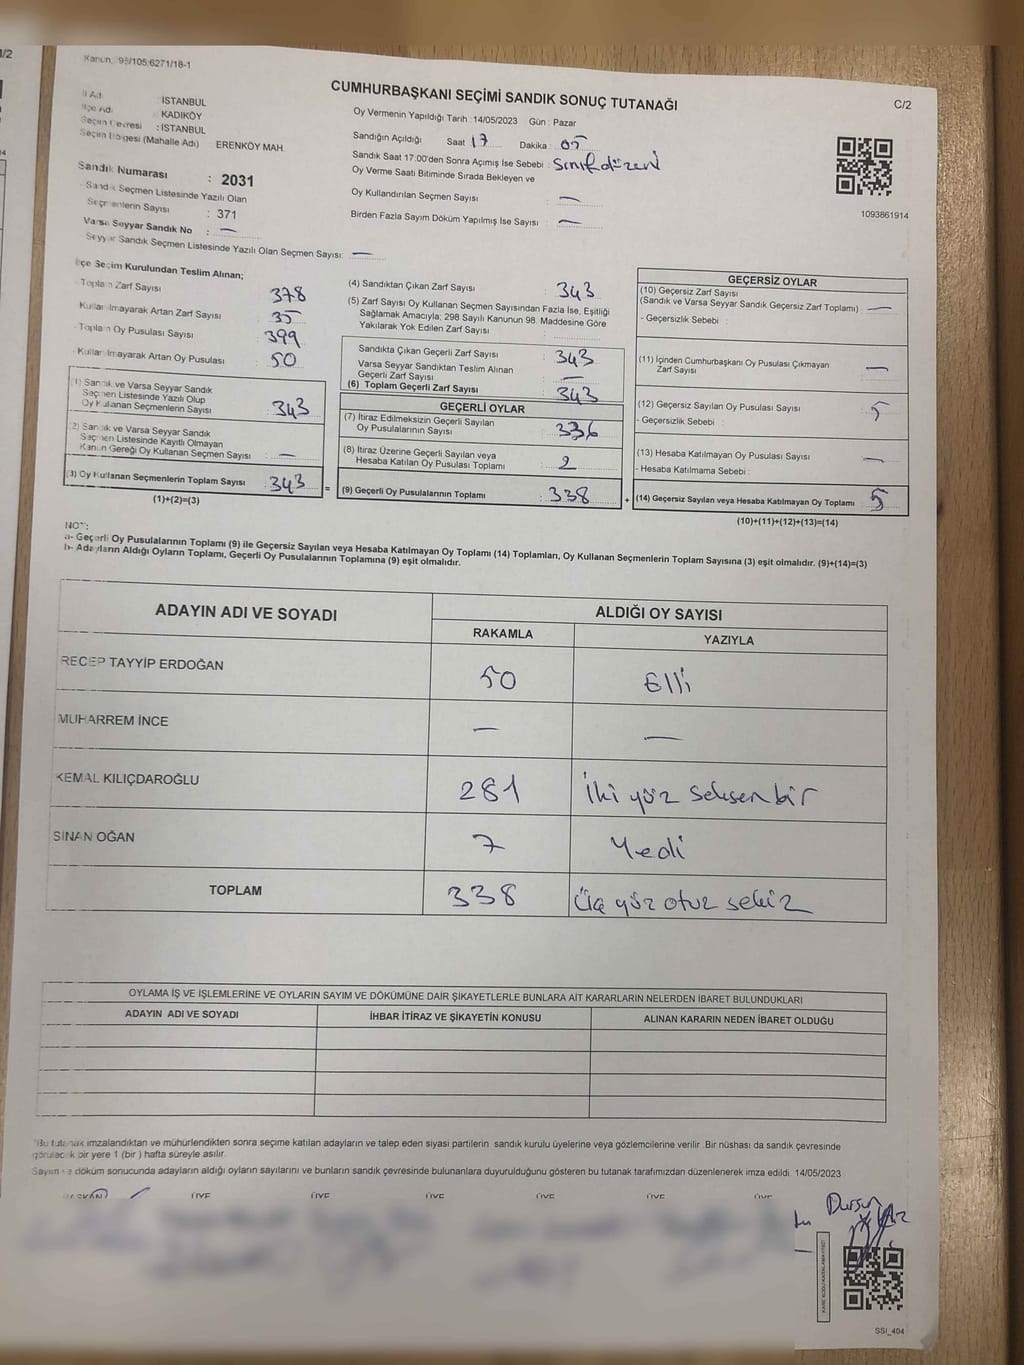 1/2
Kanun: 98/105;6271/18-1
CUMHURBAŞKANI SEÇİMİ SANDIK SONUÇ TUTANAĞI
C/2
İl Adı : İSTANBUL
İlçe Adı : KADIKÖY
Seçim Çevresi : İSTANBUL
Seçim Bölgesi (Mahalle Adı) ERENKÖY MAH.
Sandık Numarası : 2031
Sandık Seçmen Listesinde Yazılı Olan
Seçmenlerin Sayısı : 371
Varsa Seyyar Sandık No : —
Seyyar Sandık Seçmen Listesinde Yazılı Olan Seçmen Sayısı: —
Oy Vermenin Yapıldığı Tarih : 14/05/2023 Gün : Pazar
Sandığın Açıldığı Saat 17 Dakika : 05
Sandık Saat 17:00'den Sonra Açımış İse Sebebi : Sınıf düzeni
Oy Verme Saati Bitiminde Sırada Bekleyen ve
Oy Kullandırılan Seçmen Sayısı : —
Birden Fazla Sayım Döküm Yapılmış İse Sayısı : —
1093861914
İlçe Seçim Kurulundan Teslim Alınan;
Toplam Zarf Sayısı 378
Kullanılmayarak Artan Zarf Sayısı 35
Toplam Oy Pusulası Sayısı 399
Kullanılmayarak Artan Oy Pusulası : 50
(1) Sandık ve Varsa Seyyar Sandık
Seçmen Listesinde Yazılı Olup
Oy Kullanan Seçmenlerin Sayısı : 343
(2) Sandık ve Varsa Seyyar Sandık
Seçmen Listesinde Kayıtlı Olmayan
Kanun Gereği Oy Kullanan Seçmen Sayısı : —
(3) Oy Kullanan Seçmenlerin Toplam Sayısı : 343 =
(1)+(2)=(3)
(4) Sandıktan Çıkan Zarf Sayısı : 343
(5) Zarf Sayısı Oy Kullanan Seçmen Sayısından Fazla İse, Eşitliği
Sağlamak Amacıyla; 298 Sayılı Kanunun 98. Maddesine Göre
Yakılarak Yok Edilen Zarf Sayısı :
Sandıkta Çıkan Geçerli Zarf Sayısı : 343
Varsa Seyyar Sandıktan Teslim Alınan
Geçerli Zarf Sayısı : —
(6) Toplam Geçerli Zarf Sayısı : 343
GEÇERLİ OYLAR
(7) İtiraz Edilmeksizin Geçerli Sayılan
Oy Pusulalarının Sayısı : 336
(8) İtiraz Üzerine Geçerli Sayılan veya
Hesaba Katılan Oy Pusulası Toplamı : 2
(9) Geçerli Oy Pusulalarının Toplamı : 338 +
GEÇERSİZ OYLAR
(10) Geçersiz Zarf Sayısı
(Sandık ve Varsa Seyyar Sandık Geçersiz Zarf Toplamı) : —
- Geçersizlik Sebebi :
(11) İçinden Cumhurbaşkanı Oy Pusulası Çıkmayan
Zarf Sayısı : —
(12) Geçersiz Sayılan Oy Pusulası Sayısı : 5
- Geçersizlik Sebebi :
(13) Hesaba Katılmayan Oy Pusulası Sayısı : —
- Hesaba Katılmama Sebebi :
(14) Geçersiz Sayılan veya Hesaba Katılmayan Oy Toplamı : 5
(10)+(11)+(12)+(13)=(14)
NOT:
a- Geçerli Oy Pusulalarının Toplamı (9) ile Geçersiz Sayılan veya Hesaba Katılmayan Oy Toplamı (14) Toplamları, Oy Kullanan Seçmenlerin Toplam Sayısına (3) eşit olmalıdır. (9)+(14)=(3)
b- Adayların Aldığı Oyların Toplamı, Geçerli Oy Pusulalarının Toplamına (9) eşit olmalıdır.
ADAYIN ADI VE SOYADI ALDIĞI OY SAYISI
RAKAMLA YAZIYLA
RECEP TAYYİP ERDOĞAN 50 Elli
MUHARREM İNCE — —
KEMAL KILIÇDAROĞLU 281 İki yüz seksen bir
SİNAN OĞAN 7 Yedi
TOPLAM 338 Üç yüz otuz sekiz
OYLAMA İŞ VE İŞLEMLERİNE VE OYLARIN SAYIM VE DÖKÜMÜNE DAİR ŞİKAYETLERLE BUNLARA AİT KARARLARIN NELERDEN İBARET BULUNDUKLARI
ADAYIN ADI VE SOYADI İHBAR İTİRAZ VE ŞİKAYETİN KONUSU ALINAN KARARIN NEDEN İBARET OLDUĞU
*Bu tutanak imzalandıktan ve mühürlendikten sonra seçime katılan adayların ve talep eden siyasi partilerin sandık kurulu üyelerine veya gözlemcilerine verilir. Bir nüshası da sandık çevresinde
görülecek bir yere 1 (bir) hafta süreyle asılır.
Sayım ve döküm sonucunda adayların aldığı oyların sayılarını ve bunların sandık çevresinde bulunanlara duyurulduğunu gösteren bu tutanak tarafımızdan düzenlenerek imza edildi. 14/05/2023
BAŞKAN ÜYE ÜYE ÜYE ÜYE ÜYE ÜYE
Dursun
SSI_404